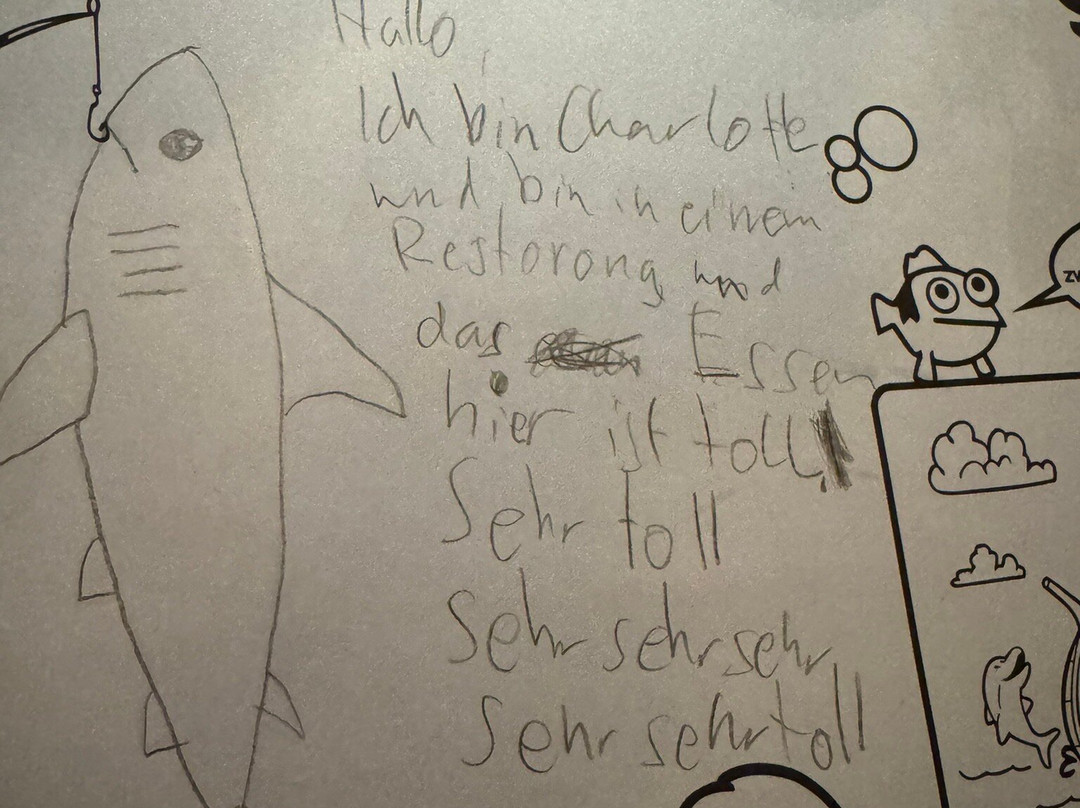 Hallo,
Ich bin Charlotte
und bin in einem
Restorong und
das Essen
hier ist toll!
Sehr toll
Sehr sehr sehr
Sehr sehr toll